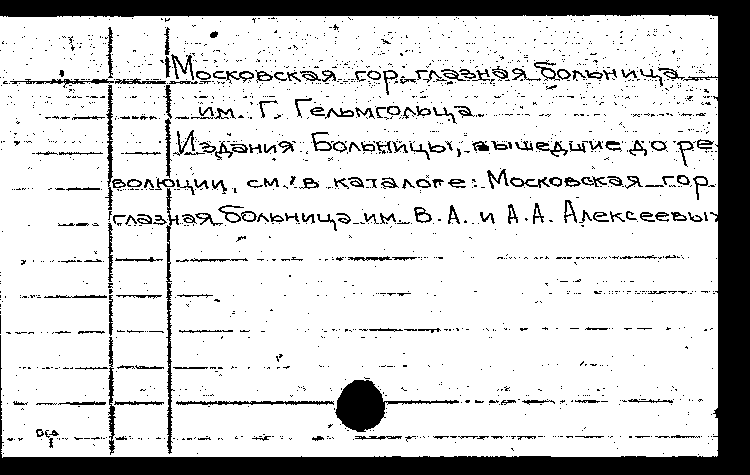 Московская гор. глазная больница
им. Г. Гельмгольца.
Издания Больницы, вышедшие до ре-
волюции, см. в каталоге: Московская гор.
глазная больница им. В.А. и А.А. Алексеевых